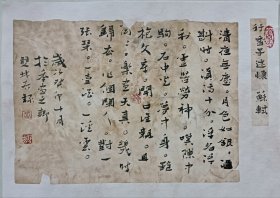 行香子述懷 蘇軾
清夜無塵月色如銀酒
斟時須滿十分浮名浮
利虛苦勞神嘆隙中
駒石中火夢中身雖
抱文章開口誰親且
陶陶樂盡天真幾時
歸去作個閒人對一
張琴一壺酒一溪雲
歲次癸十月